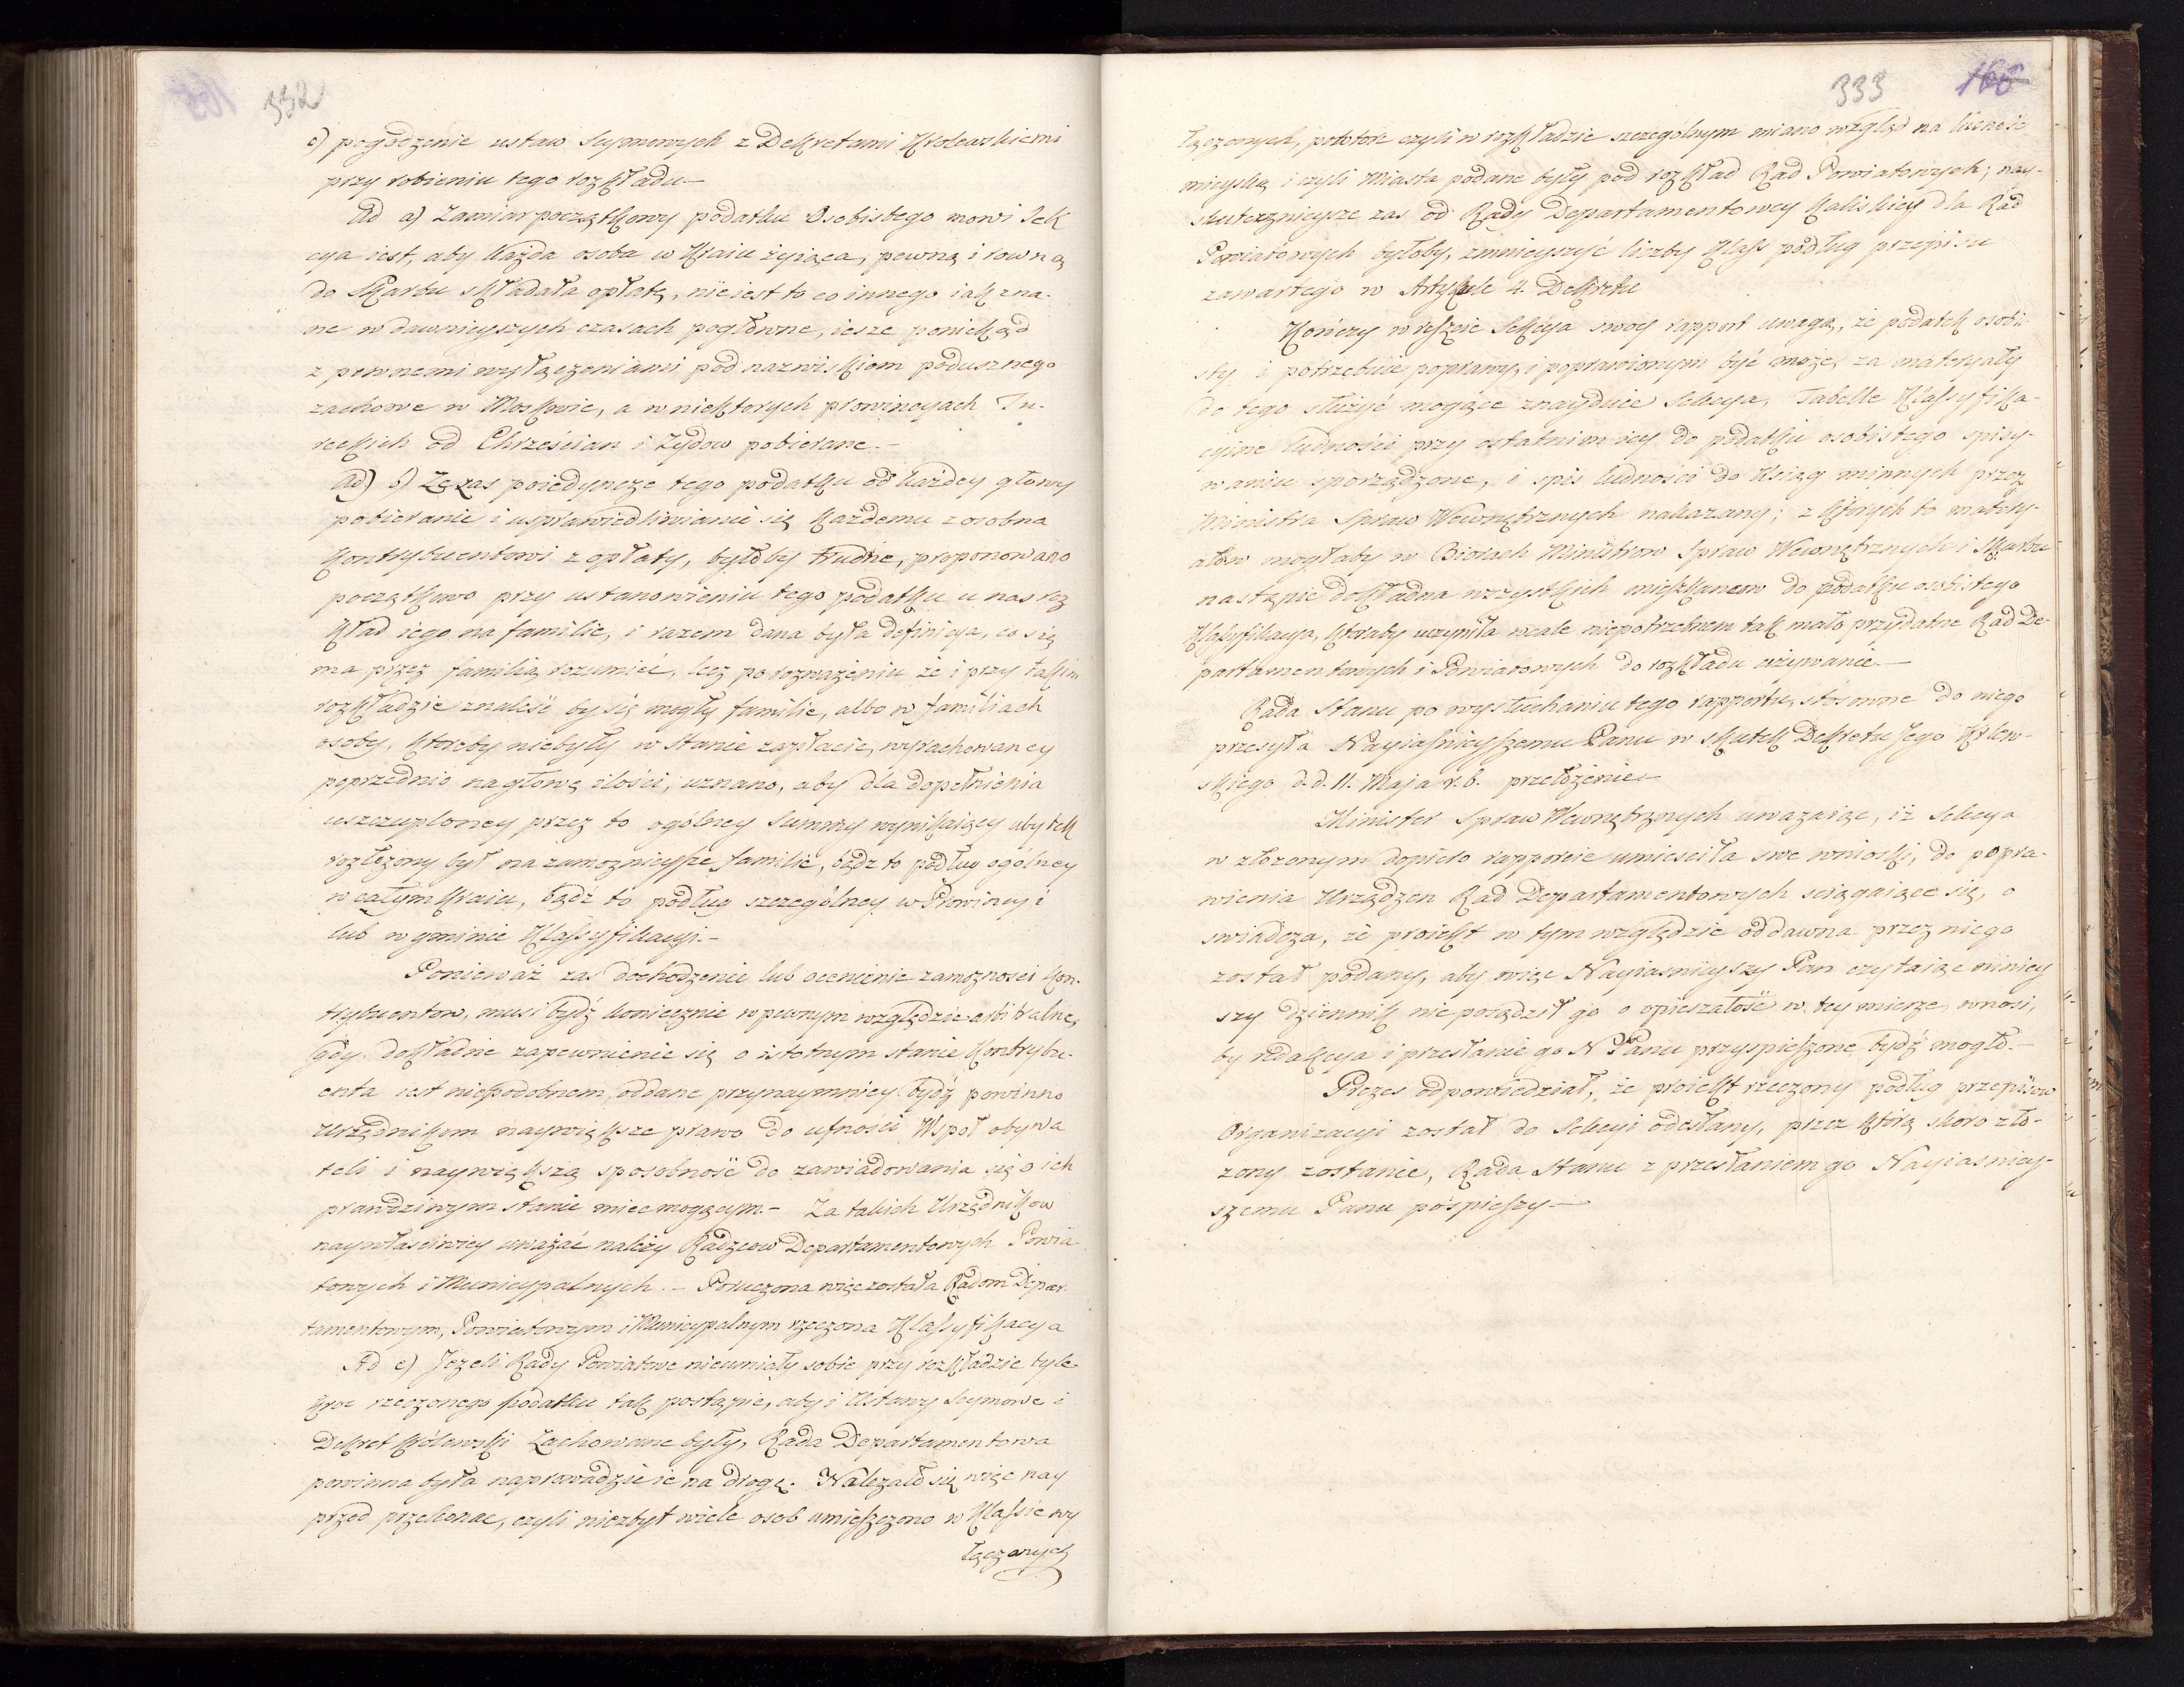 332
c) pogodzenie ustaw Seymowych z Dekretami Krolewskiemi
przy robieniu tego rozkładu –
Ad a) Zamiar początkowy podatku Osobistego mowi Sek
cya iest, aby każda osoba w kraiu żyiąca, pewną i rowną
do Skarbu składała opłatę, nie iest to co innego iak zna-
ne w dawnieyszych czasach pogłowne, ieszcze poniekąd
z pewnemi wyłączeniami pod nazwiskiem podusznego
zachowe w Moskwie, a w niektorych prowincyach Tu-
reckich od Chrześcian i Zydow pobierane. –
Ad) b) Ze zas poiedyncze tego podatku od każdey głowy
pobieranie i usprawiedliwianie się każdemu z osobna
kontrybuentowi z opłaty, byłoby trudne, proponowano
początkowo przy ustanowieniu tego podatku u nas roz
kład iego na familie, i razem dana była definicya, co się
ma przez familią rozumieć, lecz po rozważeniu że i przy takim
rozkładzie znaleść by się mogły familie, albo w familiach
osoby, ktoreby niebyły w stanie zapłacić, wyrachowaney
poprzednio na głowę ilości, uznano, aby dla dopełnienia
uszczuploney przez to ogólney Summy wynikaiący ubytek
rozłożony był na zamoznieysze familie, bądz to podług ogólney
w całym kraiu, bądź to podług szczególney w Prowincyi
lub w gminie Klassyfikacyi. –
Ponieważ zas dochodzenie lub ocenienie zamozności kon-
trybuentow, musi bydź koniecznie w pewnym względzie arbitralne,
gdy dokładne zapewnienie się o istotnym stanie Kontrybu-
enta iest niepodobnem, oddane przynaymniey bydź powinno
urzędnikom naywiększe prawo do ufności Wspoł obywa
teli i naywiększą sposobność do zawiadowania się o ich
prawdziwym stanie miec mogącym. – Za takich Urzędnikow
naywłaściwiey uważać należy Radzcow Departamentowych Powia-
towych i Municypalnych. – Poruczona więc została Radom Depar-
tamentowym, Powiatowym i Municypalnym rzeczona Klassyfikacya
Ad c) Jeżeli Rady Powiatowe nieumiały sobie przy rozkładzie tyle
kroć rzeczonego podatku tak postąpić, aby i Ustawy Seymowe i
Dekret Królewski zachowane były, Rada Departamentowa
powinna była naprowadzić ie na drogę. Nalezało się więc nay
przod przekonac, czyli niezbyt wiele osob umieszczono w Klassie wy
łączonych
333 165
łączonych, powtore czyli w rozkładzie szczególnym miano wzgląd na ludność
mieyską i czyli Miasta podane były pod rozkład Rad Powiatowych; nay-
skutecznieysze zas od Rady Departamentowey Kaliskiey dla Rad
Powiatowych byłoby, zmnieyszyć liczby Klass podług przepisu
zawartego w Artykule 4. Dekretu
Kończy w reszcie Sekcya swoy rapport uwagą, że podatek osobi-
sty i potrzebuie poprawy, i poprawionym być może, za materyały
do tego służyć mogące znayduie Sekcya, Tabelle Klassyfika-
cyine ludności przy ostatnim iey do podatku osobistego spisy-
waniu sporządzone, i spis ludności do Ksiąg minnych przez
Ministra Spraw Wewnętrznych nakazany; z których to matery-
ałow mogłaby w Biorach Ministrow Spraw Wewnętrznych i Skarbu
nastąpić dokładna wszystkich mieszkancow do podatku osobistego
Klassyfikacya, któraby uczyniła wcale niepotrzebnem tak mało przydatne Rad De-
partamentowych i Powiatowych do rozkładu używanie. –
Rada Stanu po wysłuchaniu tego rapportu, stosowne do niego
przesyła Nayiaśnieyszemu Panu w skutek Dekretu Jego Krolew-
skiego d.d. 11. Maja r.b. przełożenie –
Minister Spraw Wewnętrznych uwazaiąc, iż Sekcya
w złozonym dopiero rapporcie umieściła swe wnioski, do popra-
wienia Urządzen Rad Departamentowych sciągaiące się, o
swiadcza, że proiekt w tym względzie oddawna przez niego
został podany, aby więc Nayiasnieyszy Pan czytaiąc niniey
szy dziennik nie posądził go o opieszałość w tey mierze, wnosi,
by redakcya i przesłanie go N Panu przyspieszone bydź mogło. –
Prezes odpowiedział, że proiekt rzeczony podług przepisow
Organizacyi został do Sekcyi odesłany, przez którą skoro zło-
zony zostanie, Rada Stanu z przesłaniem go Nayiasniey-
szemu Panu pospieszy –